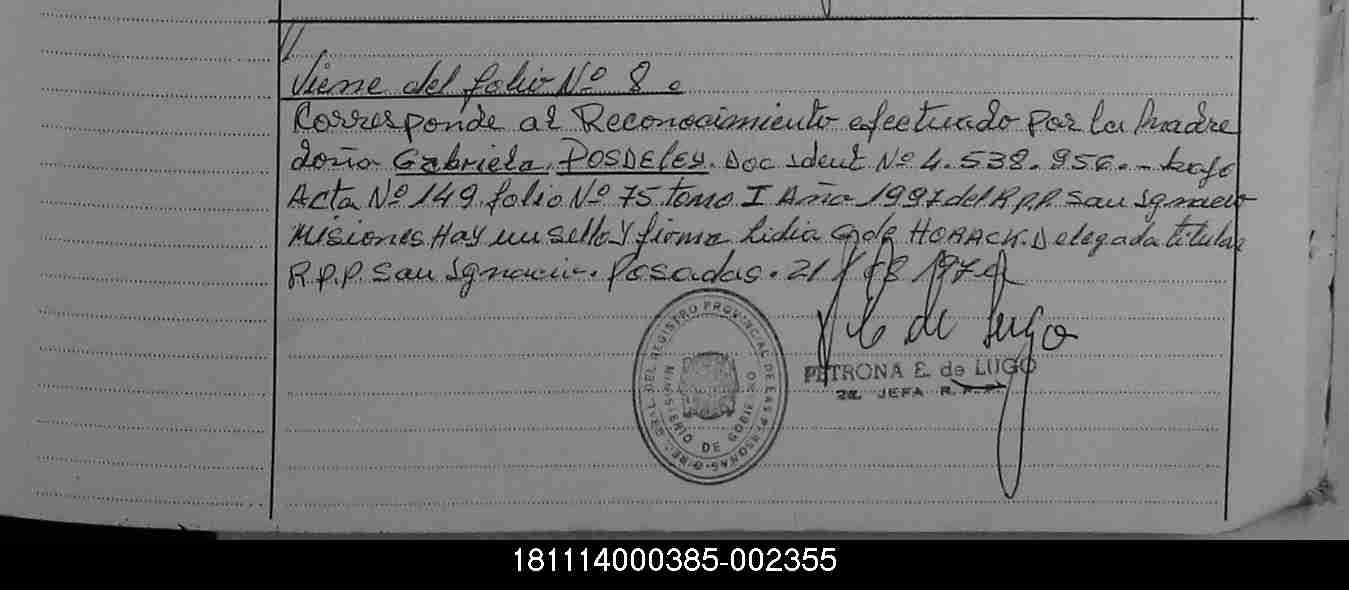 Viene del folio Nº 8.
Corresponde al Reconocimiento efectuado por la madre
doña Gabriela POSDELEY. Doc ident Nº 4.538.956.- bajo
Acta Nº 149 folio Nº 75 tomo I Año 1997 del R.p.p. San Ignacio
Misiones. Hay un sello y firma Lidia G de HORACK. Delegada titular
R.p.p. San Ignacio. Posadas. 21
DIREC. GRAL. DEL REGISTRO PROVINCIAL DE LAS PERSONAS
MINISTERIO DE GOBIERNO
de Lugo
PETRONA E. de LUGO
2a. JEFA R. P. P.
181114000385-002355